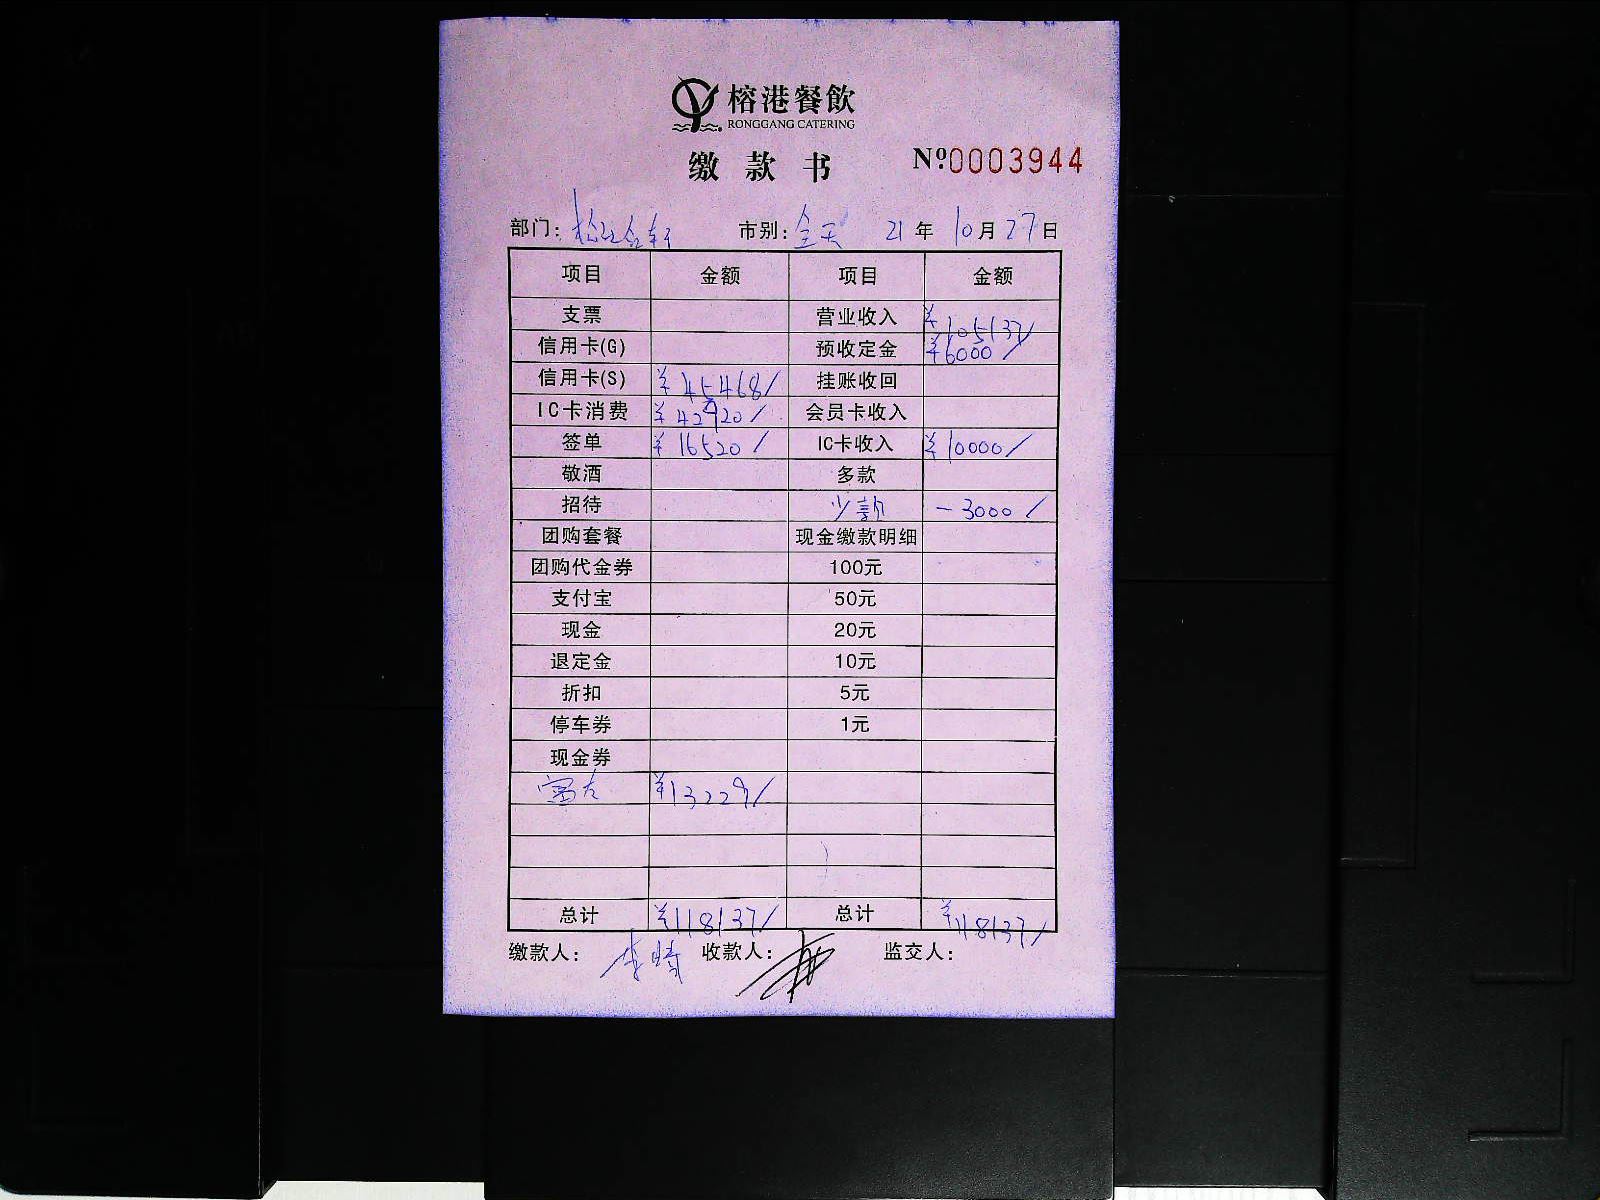 榕港餐飲
RONGGANG CATERING
缴款书 Nº:0003944
部门:松江金轩 市别:全天 21年10月27日
项目 金额 项目 金额
支票 营业收入 ¥105137/
信用卡(G) 预收定金 ¥6000/
信用卡(S) ¥45468/ 挂账收回
IC卡消费 ¥42920/ 会员卡收入
签单 ¥16520/ IC卡收入 ¥10000/
敬酒 多款
招待 少款 -3000/
团购套餐 现金缴款明细
团购代金券 100元
支付宝 50元
现金 20元
退定金 10元
折扣 5元
停车券 1元
现金券
富友 ¥13229/
总计 ¥118137/ 总计 ¥118137/
缴款人:李 收款人: 监交人: